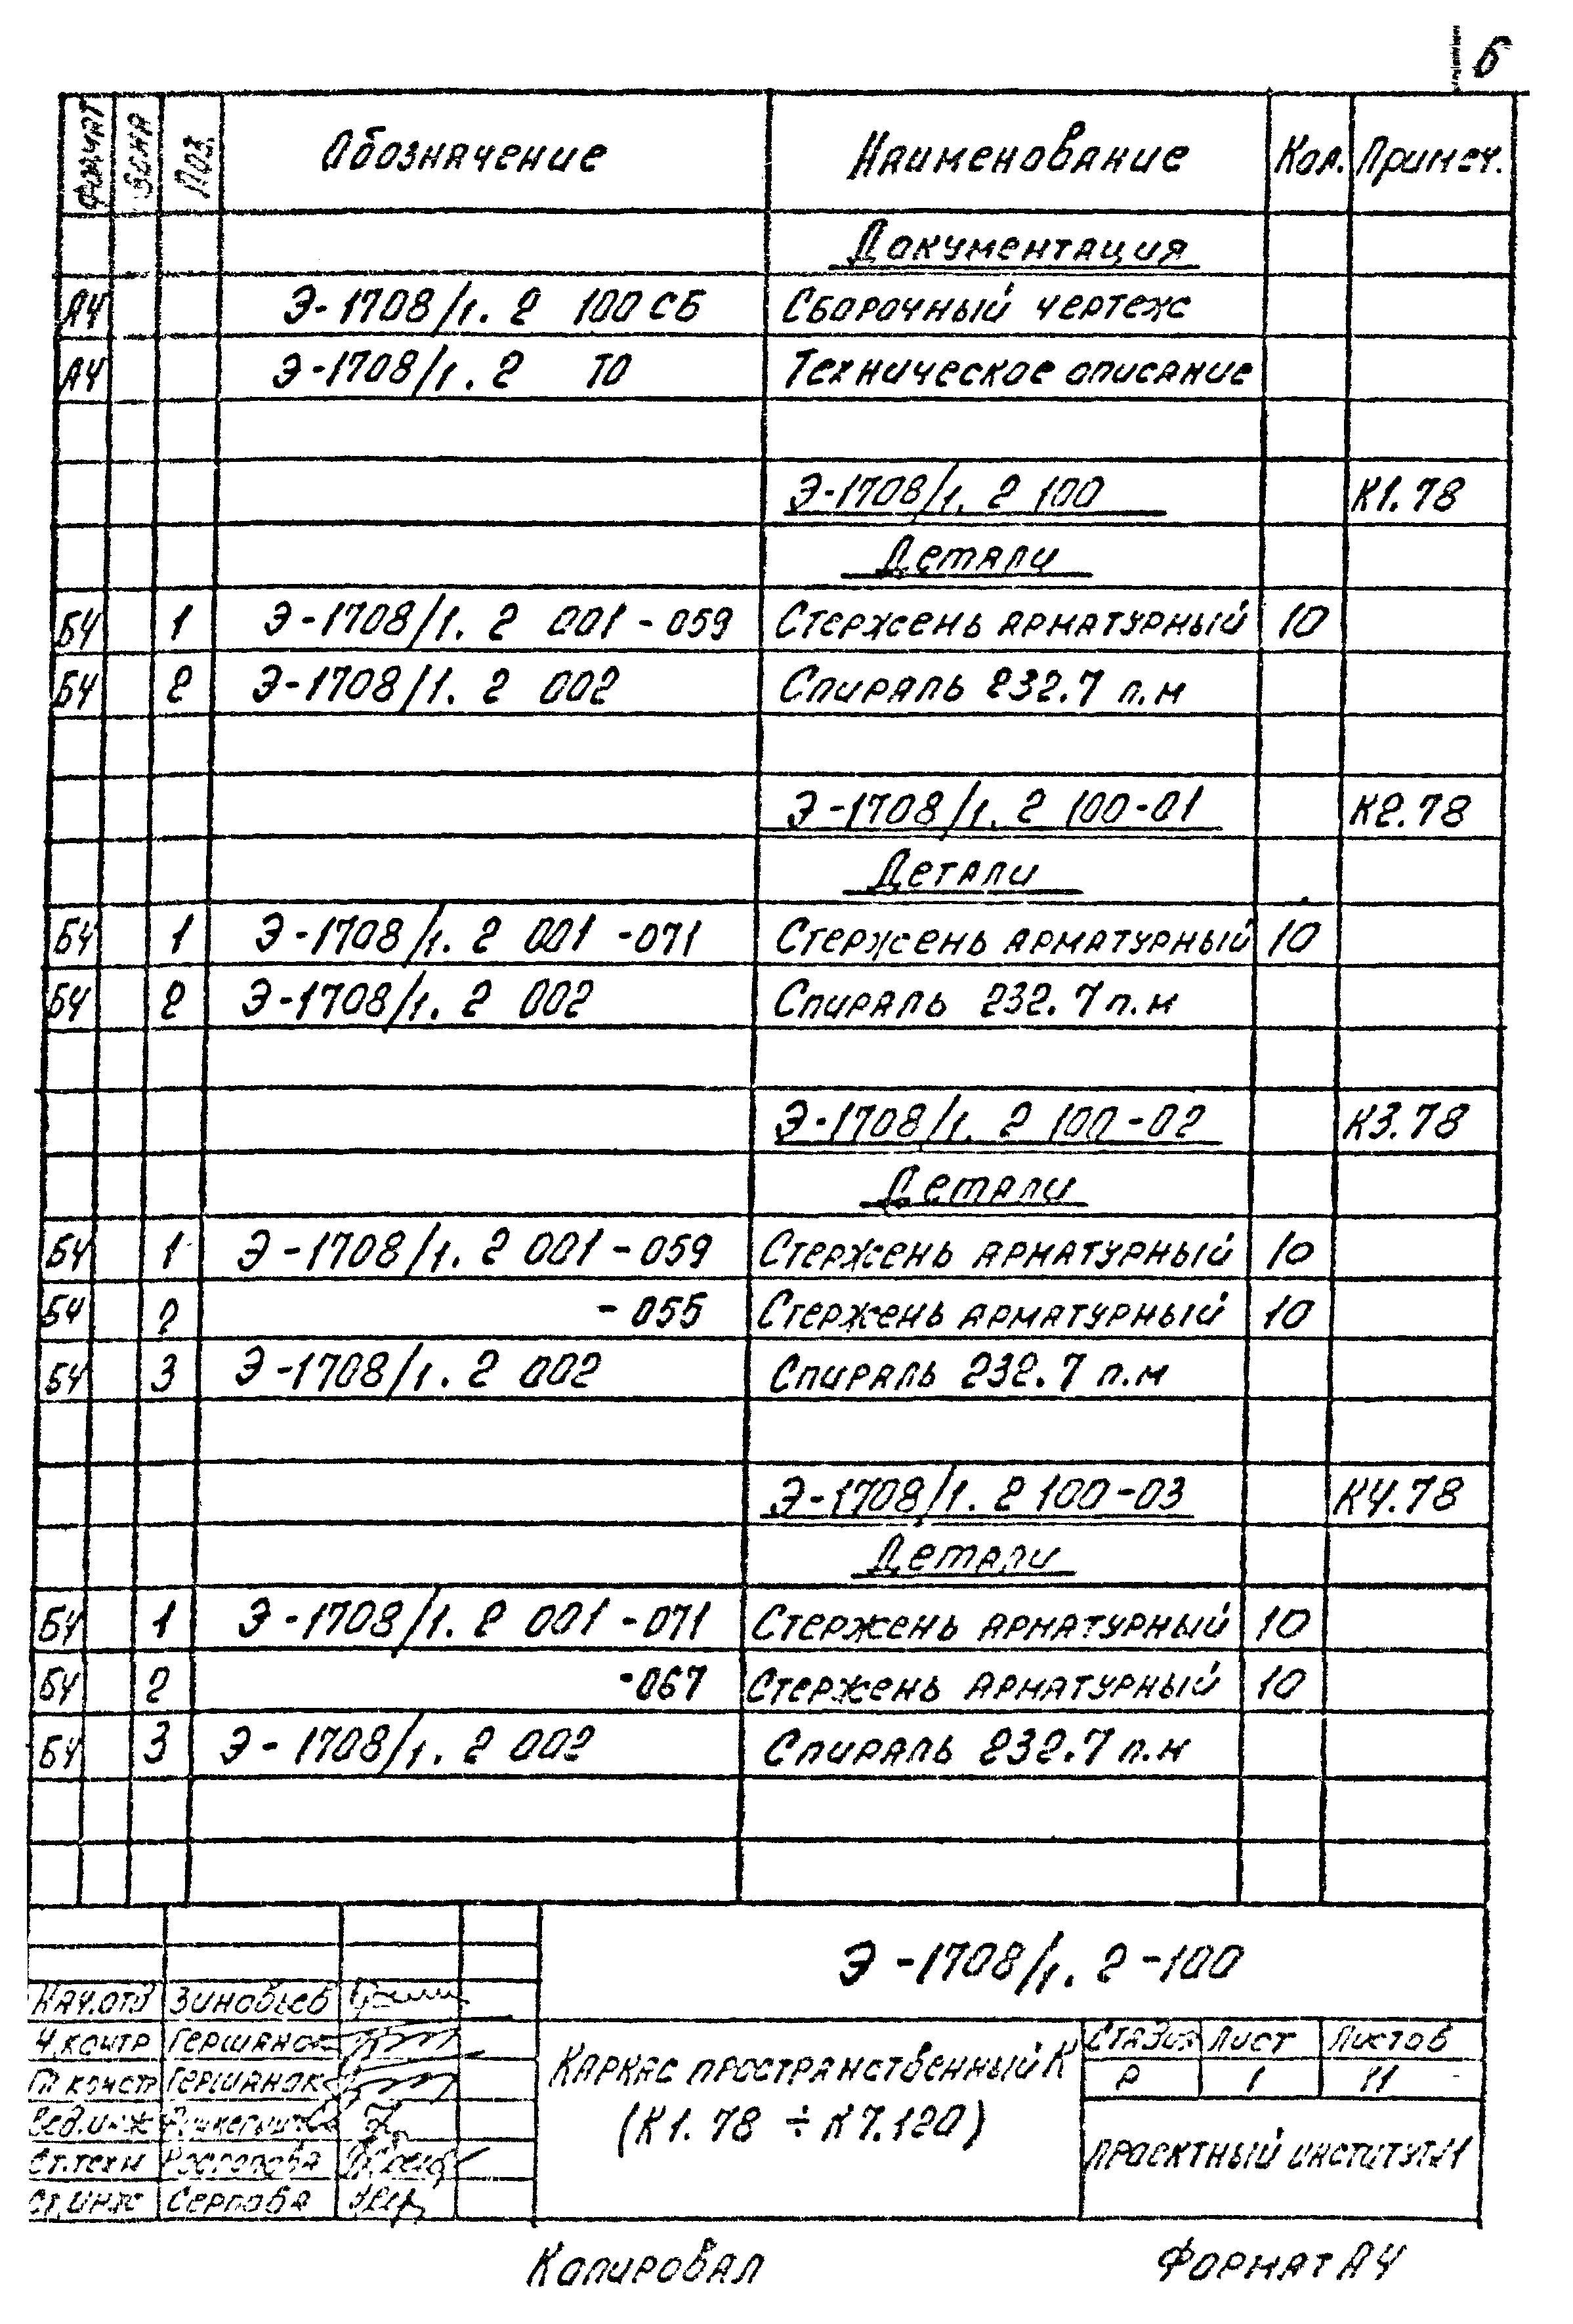 6
Формат Зона Поз. Обозначение Наименование Кол. Примеч.
Документация
А4 Э-1708/1. 2 100 СБ Сборочный чертеж
А4 Э-1708/1. 2 ТО Техническое описание
Э-1708/1. 2 100 К1.78
Детали
БЧ 1 Э-1708/1. 2 001-059 Стержень арматурный 10
БЧ 2 Э-1708/1. 2 002 Спираль 232.7 п.м
Э-1708/1. 2 100-01 К2.78
Детали
БЧ 1 Э-1708/1. 2 001-071 Стержень арматурный 10
БЧ 2 Э-1708/1. 2 002 Спираль 232.7 п.м
Э-1708/1. 2 100-02 К3.78
Детали
БЧ 1 Э-1708/1. 2 001-059 Стержень арматурный 10
БЧ 2 -055 Стержень арматурный 10
БЧ 3 Э-1708/1. 2 002 Спираль 232.7 п.м
Э-1708/1. 2 100-03 К4.78
Детали
БЧ 1 Э-1708/1. 2 001-071 Стержень арматурный 10
БЧ 2 -067 Стержень арматурный 10
БЧ 3 Э-1708/1. 2 002 Спираль 232.7 п.м
Э-1708/1. 2-100
Нач.отд Зиновьев
Н.контр Гершанок
Гл констр Гершанок
Вед.инж
Ст.техн
Ст.инж Серпова
Каркас пространственный К
(К1.78 ÷ К7.120)
Стадия Лист Листов
Р 1 11
Проектный институт №1
Копировал Формат А4